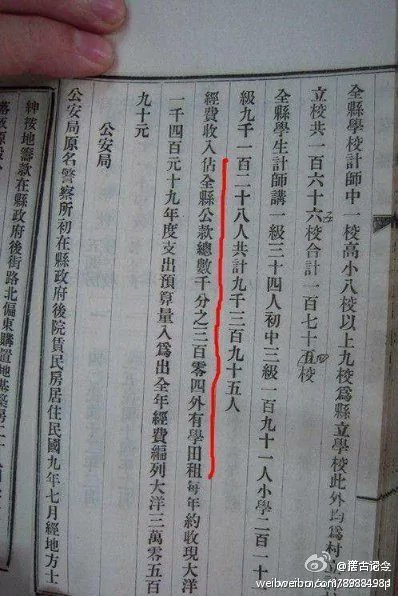 全縣學校計師中一校高小八校以上九校爲縣立學校此外均爲村
立校共一百六十六校合計一百七十五校
全縣學生計師講一級三十四人初中三級一百九十一人小學二百一十
級九千一百二十八人共計九千三百九十五人
經費收入佔全縣公款總數千分之三百零四外有學田租每年約收現大洋
一千四百元十九年度支出預算量入爲出全年經費編列大洋三萬零五百
九十元
公安局
公安局原名警察所初在縣政府後院賃民房居住民國九年七月經地方士
紳按地籌款在縣政府後街路北偏東購置地基築